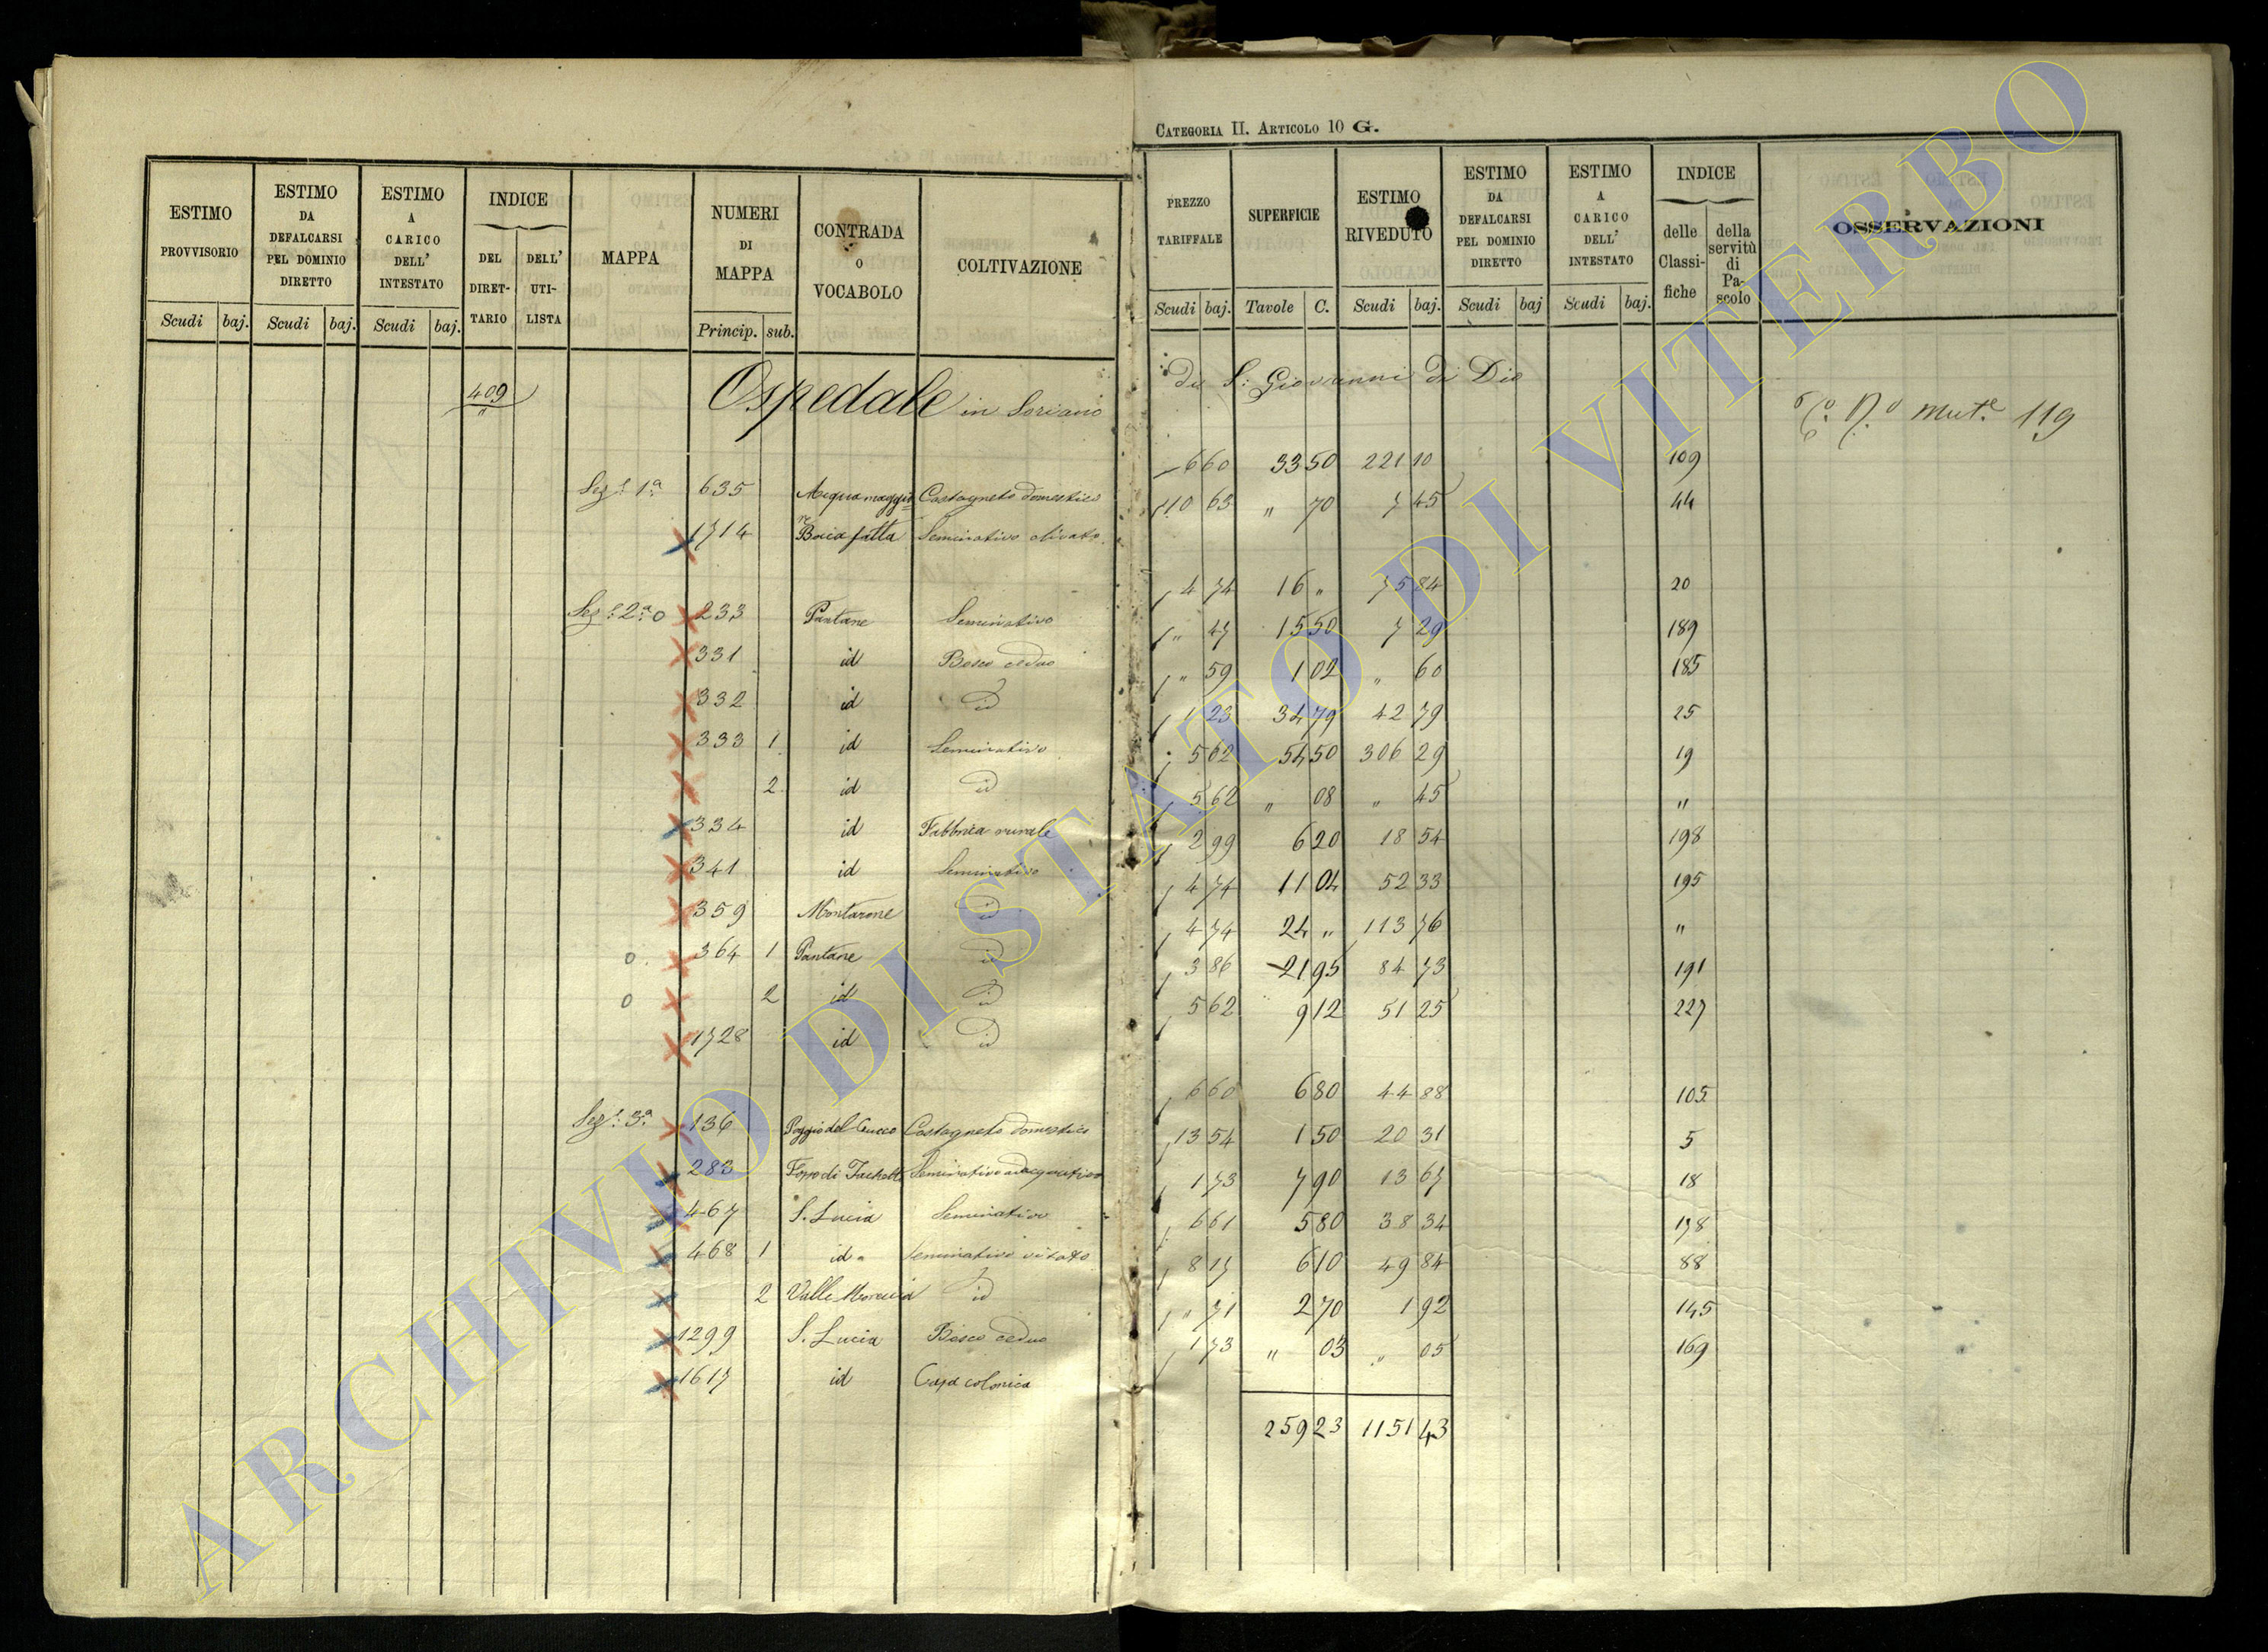 CATEGORIA II. ARTICOLO 10 G.
ESTIMO PROVVISORIO Scudi baj.
ESTIMO DA DEFALCARSI PEL DOMINIO DIRETTO Scudi baj.
ESTIMO A CARICO DELL' INTESTATO Scudi baj.
INDICE DEL DIRETTARIO DELL' UTILISTA
MAPPA
NUMERI DI MAPPA Princip. sub.
CONTRADA O VOCABOLO
COLTIVAZIONE
PREZZO TARIFFALE Scudi baj.
SUPERFICIE Tavole C.
ESTIMO RIVEDUTO Scudi baj.
ESTIMO DA DEFALCARSI PEL DOMINIO DIRETTO Scudi baj
ESTIMO A CARICO DELL' INTESTATO Scudi baj.
INDICE delle Classifiche della servitù di Pascolo
OSSERVAZIONI
409 Ospedale in Soriano di S. Giovanni di Dio
N.º mut.e 119
Sez.e 1ª 635 Acquamaggiore Castagneto domestico 6 60 33 50 221 10 109
1714 Bacia fatta Seminativo olivato 10 63 " 70 7 45 44
Sez.e 2ª o 233 Pantane Seminativo 4 74 16 " 75 84 20
331 id Bosco ceduo " 47 15 50 7 29 189
332 id id " 59 1 02 " 60 185
333 1 id Seminativo 1 23 34 79 42 79 25
2 id id 5 62 54 50 306 29 19
334 id Fabbrica rurale 5 62 " 08 " 45 "
341 id Seminativo 2 99 6 20 18 54 198
359 Montarone id 4 74 11 04 52 33 195
o 364 1 Pantane id 4 74 24 " 113 76 "
o 2 id id 3 86 21 95 84 73 191
1728 id id 5 62 9 12 51 25 227
Sez.e 3ª 136 Poggio del Cucco Castagneto domestico 6 60 6 80 44 88 105
283 Fosso di Seminativo adacquativo 13 54 1 50 20 31 5
467 S. Lucia Seminativo 1 73 7 90 13 67 18
468 1 id Seminativo vitato 6 61 5 80 38 34 178
2 Valle id 8 17 6 10 49 84 88
1299 S. Lucia Bosco ceduo " 71 2 70 1 92 145
1617 id Casa colonica 1 73 " 03 " 05 169
259 23 1151 43
ARCHIVIO DI STATO DI VITERBO